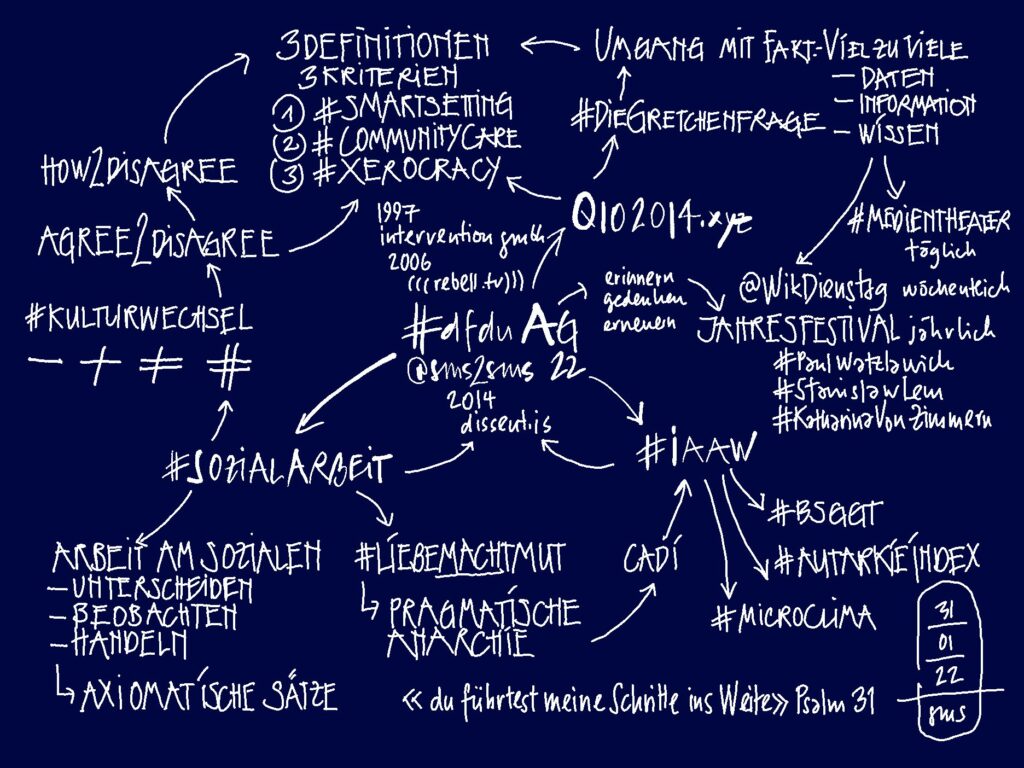 3 DEFINITIONEN
3 KRITERIEN
① #SMARTSETTING
② #COMMUNITYCARE
③ #XEROCRACY
UMGANG MIT FAKT:-VIEL ZU VIELE
– DATEN
– INFORMATION
– WISSEN
#DIEGRETCHENFRAGE
HOW2DISAGREE
AGREE2DISAGREE
#KULTURWECHSEL
– + ≠ #
1997
intervention gmbh
2006
(((rebell.tv)))
Q102014.xyz
#MEDIENTHEATER
täglich
@WikDienstag wöchentlich
JAHRESFESTIVAL jährlich
#PaulWatzlawick
#StanislawLem
#KatharinaVonZimmern
erinnern
gedenken
erneuern
#dfdu AG
@sms2sms 22
2014
dissent.is
#SOZIALARBEIT
#IAAW
ARBEIT AM SOZIALEN
– UNTERSCHEIDEN
– BEOBACHTEN
– HANDELN
↳ AXIOMATISCHE SÄTZE
#LIEBEMACHTMUT
↳ PRAGMATISCHE
ANARCHIE
CADI
#BSGGT
#AUTARKIEINDEX
#MICROCLIMA
« du führtest meine Schritte ins Weite» Psalm 31
31
01
22
sms